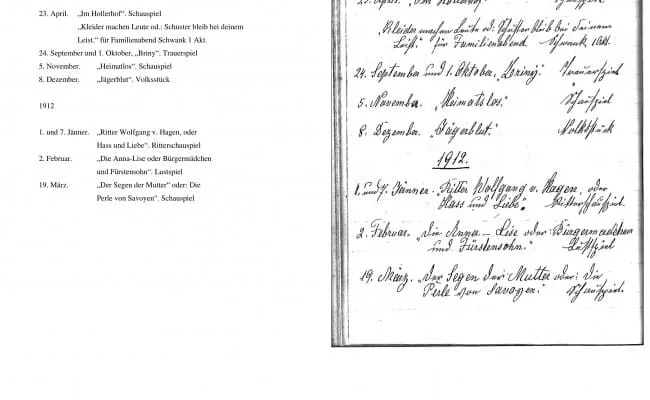 23. April. „Im Hollerhof“. Schauspiel
„Kleider machen Leute od.: Schuster bleib bei deinem
Leist.“ für Familienabend Schwank 1 Akt.
24. September und 1. Oktober, „Briny“, Trauerspiel
5. November. „Heimatlos“. Schauspiel
8. Dezember. „Jägerblut“. Volksstück
1912
1. und 7. Jänner. „Ritter Wolfgang v. Hagen, oder
Hass und Liebe“. Ritterschauspiel
2. Februar. „Die Anna-Lise oder Bürgermädchen
und Fürstensohn“. Lustspiel
19. März. „Der Segen der Mutter“ oder: Die
Perle von Savoyen“. Schauspiel
„Kleider machen Leute od: Schuster bleib bei deinem
Leist.“ für Familienabend Schwank 1 Akt.
24. September und 1. Oktober, „Zriny“. Trauerspiel
5. November. „Heimatlos.“ Schauspiel
8. Dezember. „Jägerblut.“ Volksstück
1912.
1. und 7. Jänner. Ritter Wolfgang v. Hagen, oder
Hass und Liebe“. Ritterschauspiel.
2. Februar. „Die Anna-Lise oder Bürgermädchen
und Fürstensohn.“ Lustspiel
19. März. „Der Segen der Mutter oder: Die
Perle von Savoyen.“ Schauspiel.